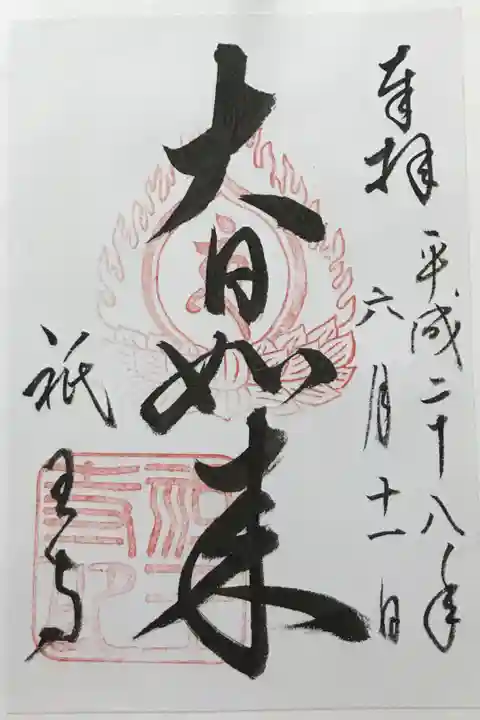 奉拝
平成二十八年
六月十一日
大日如来
祇王寺
祇王寺印